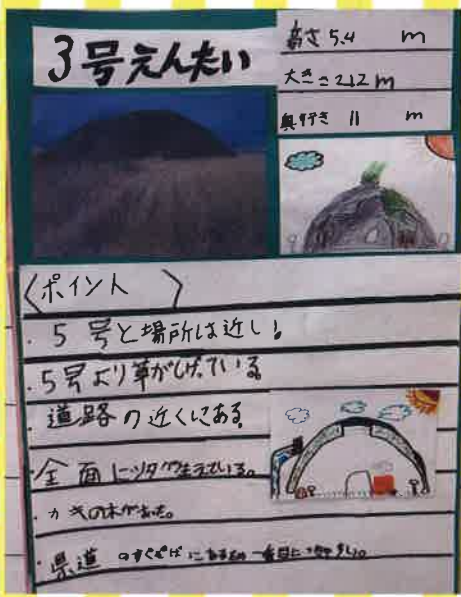 3号えんたい
高さ 5.4 m
大きさ 212 m
奥行き 11 m
〈ポイント〉
・5号と場所は近い。
・5号より草がしげっている。
・道路の近くにある
・全面にツタが生えている。
・カキの木があった。
・県道のすぐそばにあるため一番目に